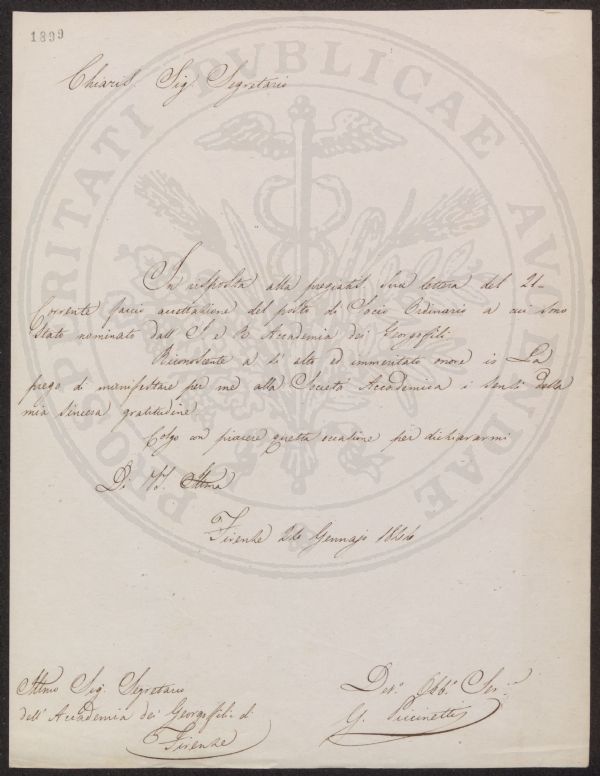 1899
Chiaris. Sig. Segretario
In risposta alla pregiatis. Sua lettera del 21-
Corrente faccio accettazione del posto di Socio Ordinario a cui sono
stato nominato dall' I. e R. Accademia dei Georgofili.
Riconoscente a sì alto ed immeritato onore io La
prego di manifestare per me alla Società Accademica i sensi della
mia sincera gratitudine.
Colgo con piacere questa occasione per dichiararmi
Di V.S. Illma
Firenze Gennajo
Illmo Sig. Segretario
dell' Accademia dei Georgofili di
Firenze
Dev.º Obb.º Ser.
G. Puccinetti
PROSPERITATI PUBLICAE AUGENDAE